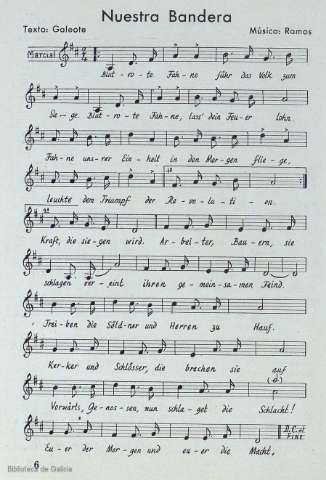 Nuestra Bandera
Texto: Galeote Músico: Ramos
Marcial
Blut-ro-te Fah-ne führ das Volk zum
Sie-ge. Blut-ro-te Fah-ne, lass' dein Feu-er lohn
Fah-ne uns-rer Ein-heit in den Mor-gen flie-ge,
leuchte dem Triumpf der Re-vo-lu-ti-on.
Kraft, die sie-gen wird. Ar-bei-ter, Bau-ern, sie
schlagen ver-eint ihren ge-mein-sa-men Feind.
Trei-ben die Söld-ner und Herren zu Hauf.
Ker-ker und Schlösser, die brechen sie auf
Vorwärts, Ge-nos-sen, nun schla-get die Schlacht!
D.C. al
FINE
Eu-er der Mor-gen und eu-er die Macht.
6
Biblioteca de Galicia